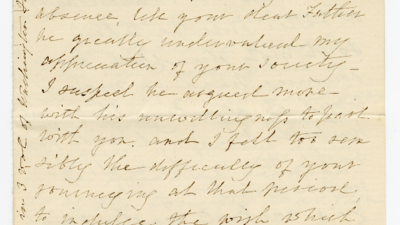 absence, like your dear Father
he greatly undervalued my
appreciation of your society –
I suspect he argued more
with his unwillingness to part
with you. and I felt too sen
sibly the difficulty of your
journeying at that period
to indulge the wish which
in 3 vol. of Washington's